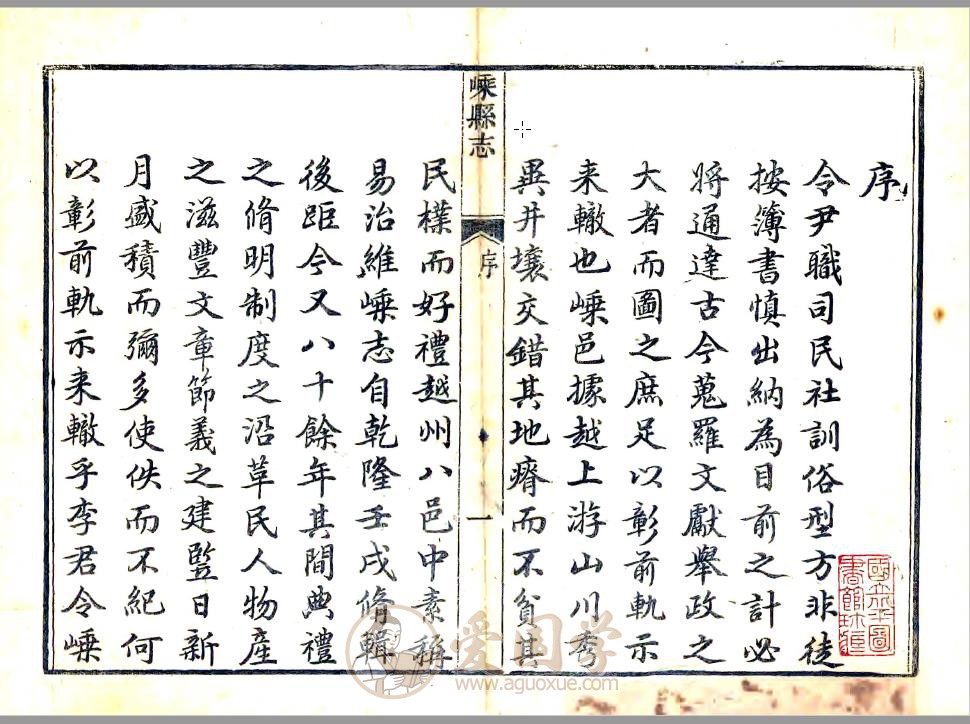 序
令尹職司民社訓俗型方非徒
按簿書慎出納為目前之計必
將通達古今蒐羅文獻舉政之
大者而圖之庶足以彰前軌示
来轍也嵊邑據越上游山川秀
異井壤交錯其地瘠而不貧其
嵊縣志
序
一
民樸而好禮越州八邑中素稱
易治維嵊志自乾隆壬戌脩輯
後距今又八十餘年其間典禮
之脩明制度之沿革民人物產
之滋豐文章節義之建豎日新
月盛積而彌多使佚而不紀何
以彰前軌示来轍乎李君令嵊
國立北平圖
書館珍藏
爱国学
www.aguoxue.com